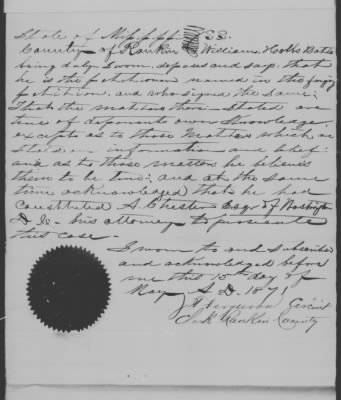 State of Mississippi } SS.
County of Rankin } William Hobbs Bates
being duly sworn, deposes and says, that
he is the petitioner named in the forgoing
petition, and who signed the same;
That the matters therein Stated are
true of deponents own Knowledge
except as to those Matters which are
stated on information and belief:
and as to those matters he believes
them to be true; and at the same
time acknowledged that he had
constituted A Chester Esq. of Washington
D.C. his attorney to prosecute
this case.
Sworn to and Subscribed
and acknowledged before
me this 10th day of
May A.D. 1871
Ferguson Circuit
Clerk Rankin County